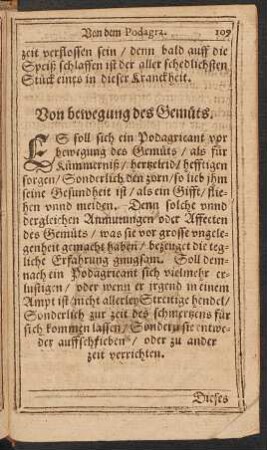 Von dem Podagra. 109
zeit verflossen sein / denn bald auff die
Speiß schlaffen ist der aller schedlichsten
Stück eines in dieser Kranckheit.
Von bewegung des Gemüts.
ES soll sich ein Podagricant vor
bewegung des Gemüts / als für
Kümmerniß / hertzeleid / hefftigen
sorgen / Sonderlich den zorn / so lieb ihm
seine Gesundheit ist / als ein Gifft / flie-
hen vnnd meiden. Denn solche vnnd
dergleichen Anmutungen oder Affecten
des Gemüts / was sie vor grosse vngele-
genheit gemacht haben / bezeuget die teg-
liche Erfahrung gnugsam. Soll dem-
nach ein Podagricant sich vielmehr er-
lustigen / oder wenn er jrgend in einem
Ampt ist / nicht allerley Streitige hendel /
Sonderlich zur zeit des schmertzens für
sich kommen lassen / Sondern sie entwe-
der auffschieben / oder zu ander
zeit verrichten.
Dieses